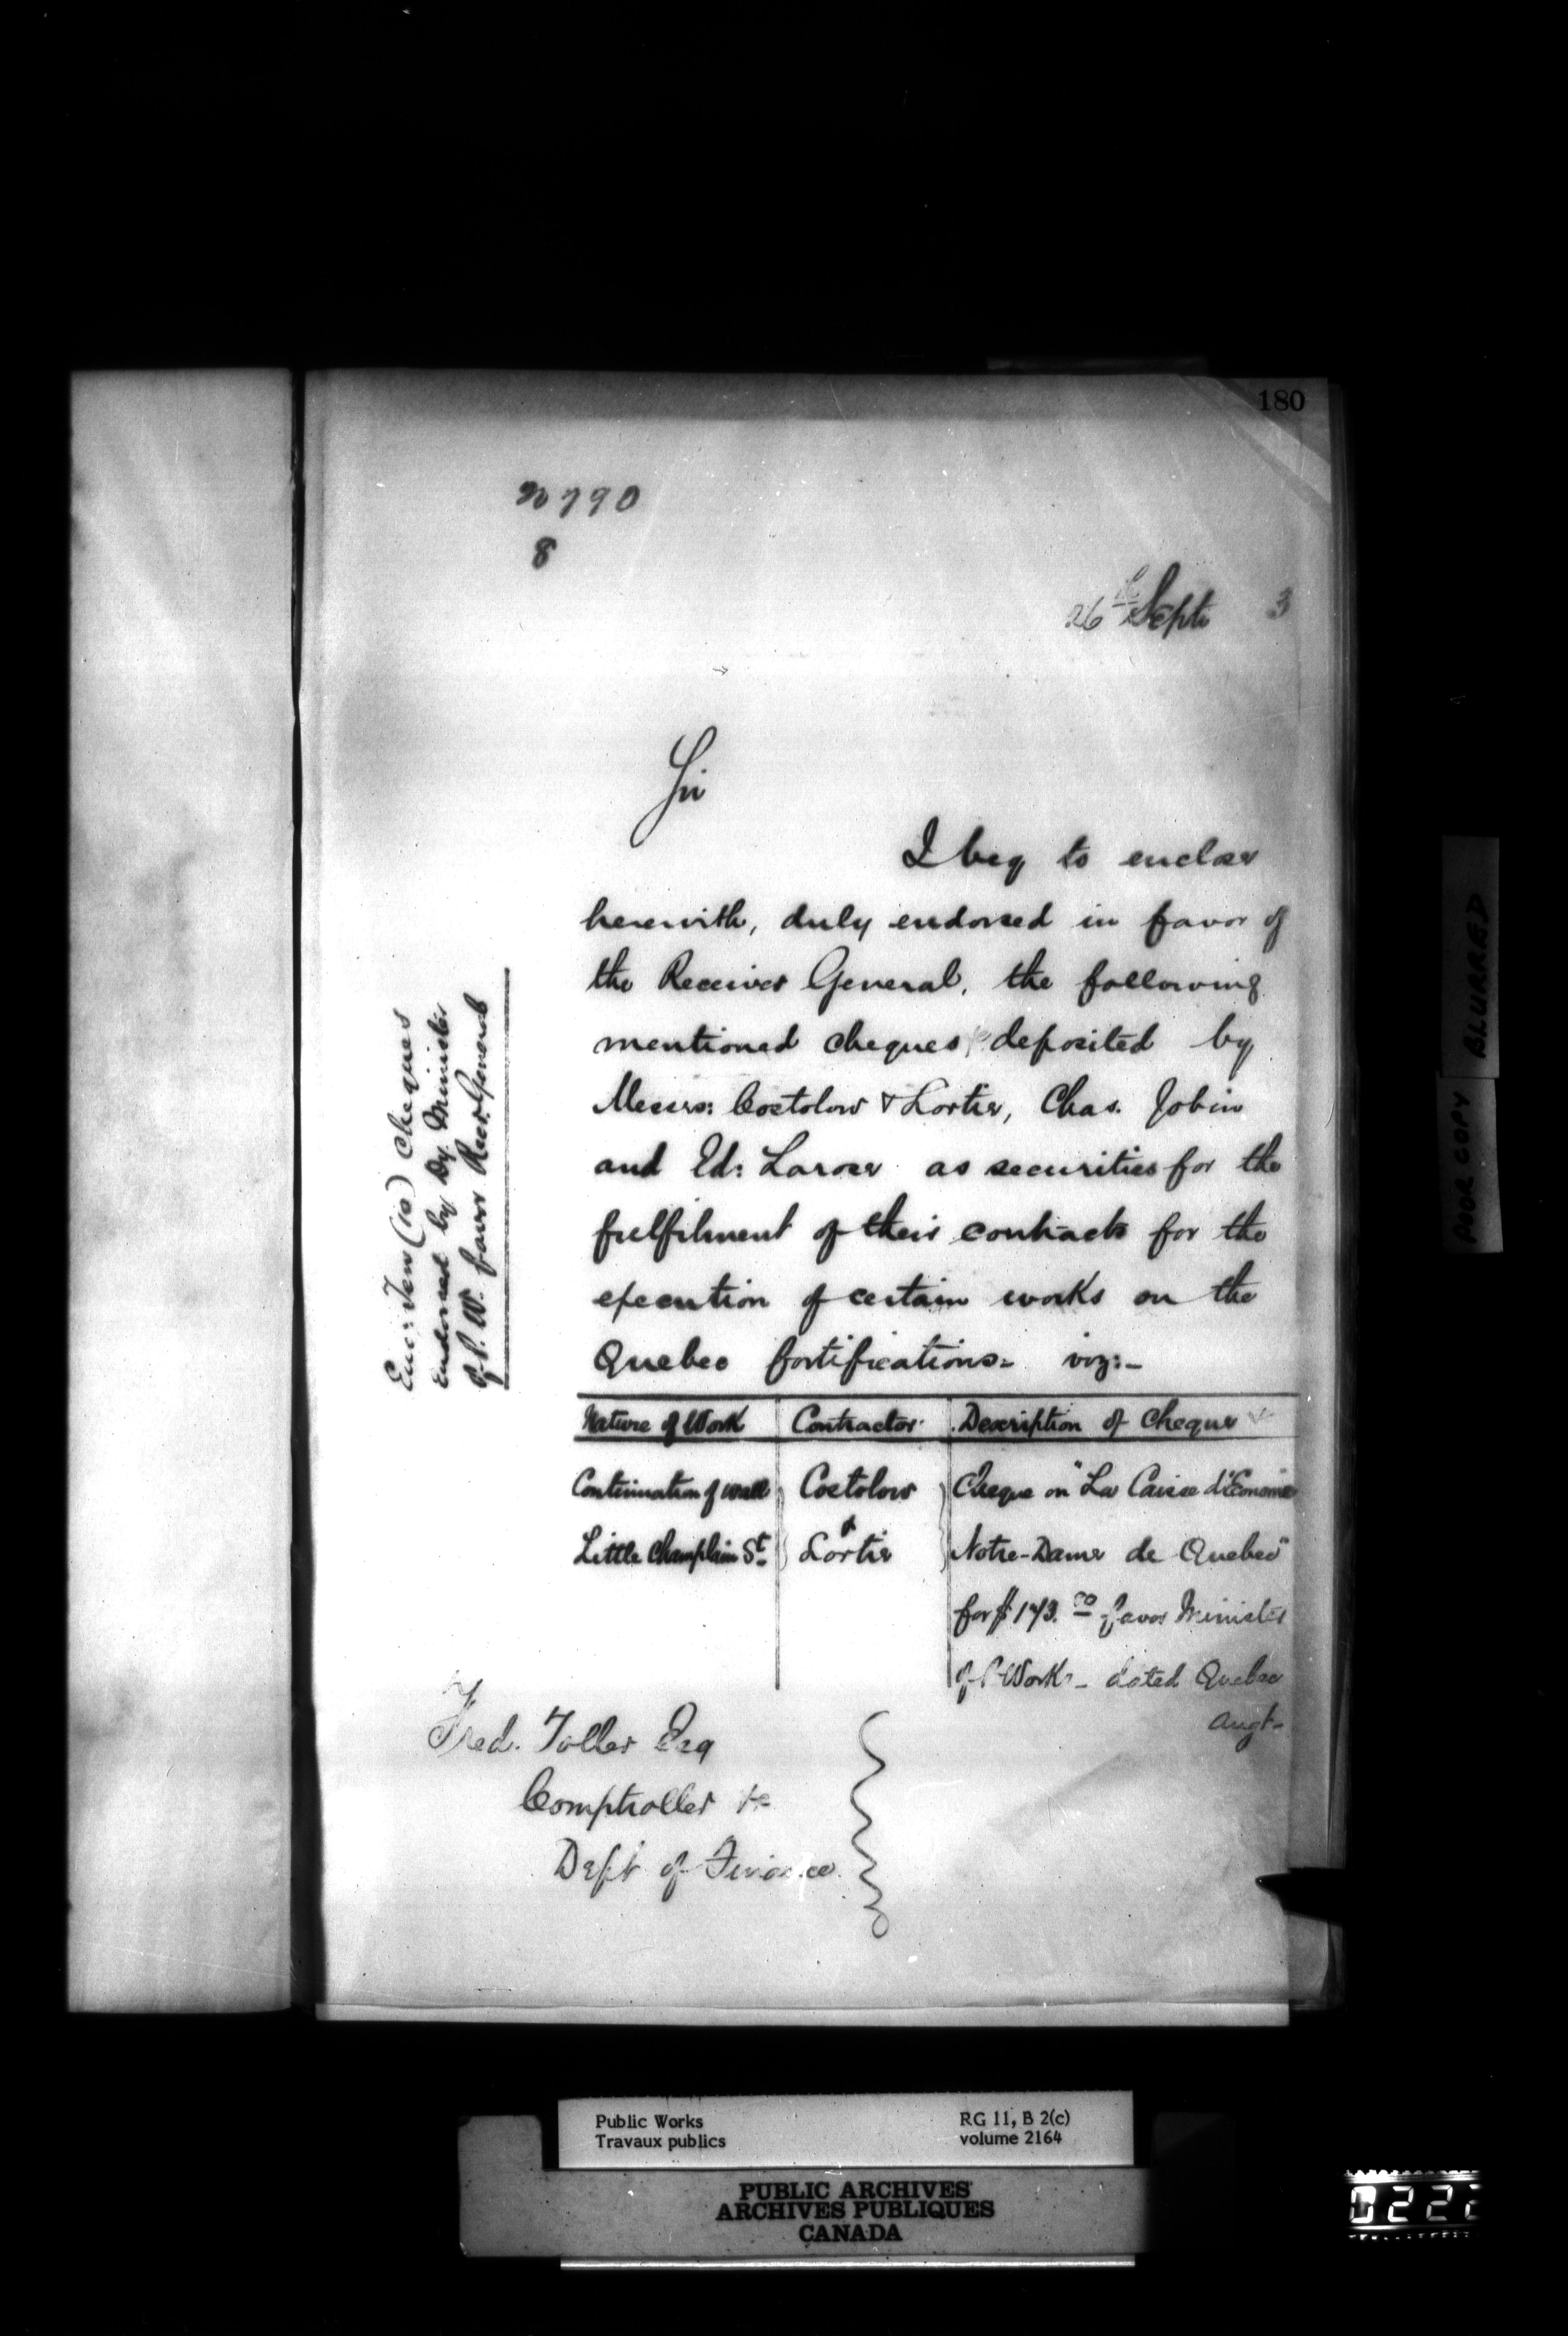 180
No 790
8
26th Sept 3
Sir
I beg to enclose
herewith, duly endorsed in favor of
the Receiver General, the following
mentioned cheques deposited by
Messrs: Costolow & Lortie, Chas. Jobin
and Ed: Larose as securities for the
fulfilment of their contracts for the
execution of certain works on the
Quebec fortifications - viz:-
Encs: Ten (10) cheques
endorsed by Dy. Minister
of P. W. favor Recr. General
Nature of Work Contractor Description of Cheque
Continuation of wall Costolow Cheque on "La Caisse d'Economie
Little Champlain St. & Lortie Notre-Dame de Quebec"
for $173.00 favor Minister
of P. Works - dated Quebec
Augt-
Fred. Toller Esq
Comptroller &c
Dept of Finance
POOR COPY
BLURRED
Public Works RG 11, B 2(c)
Travaux publics volume 2164
PUBLIC ARCHIVES
ARCHIVES PUBLIQUES
CANADA
0222